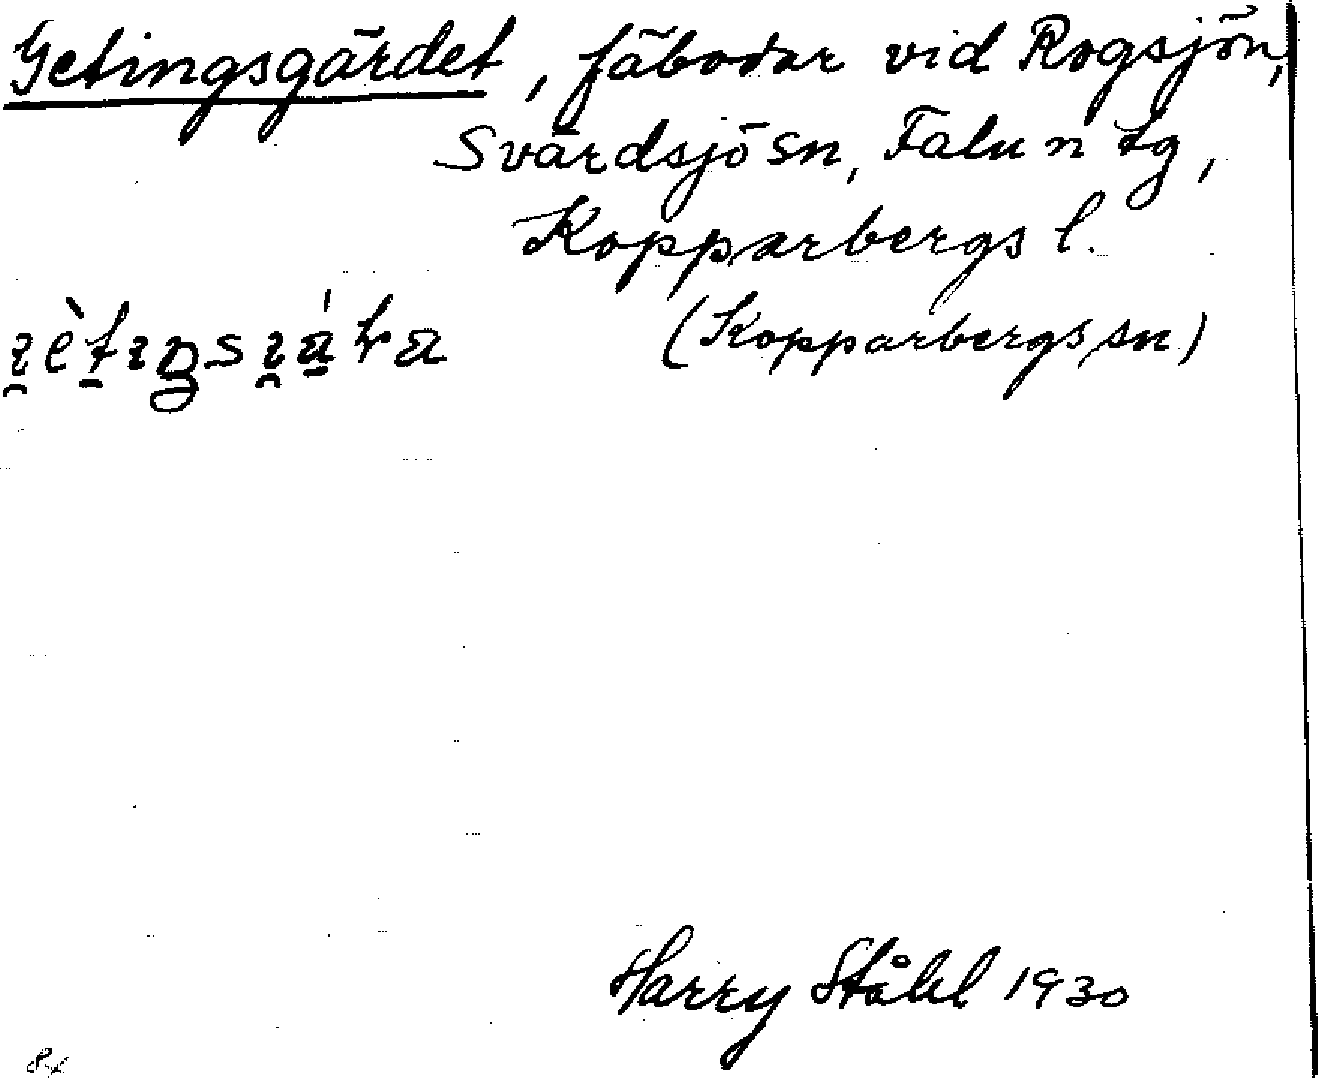 Getingsgärdet, fäbodar vid Rogsjön,
Svärdsjö sn, Falu n tg,
Kopparbergs l.
(Kopparbergs sn)
Harry Ståhl 1930